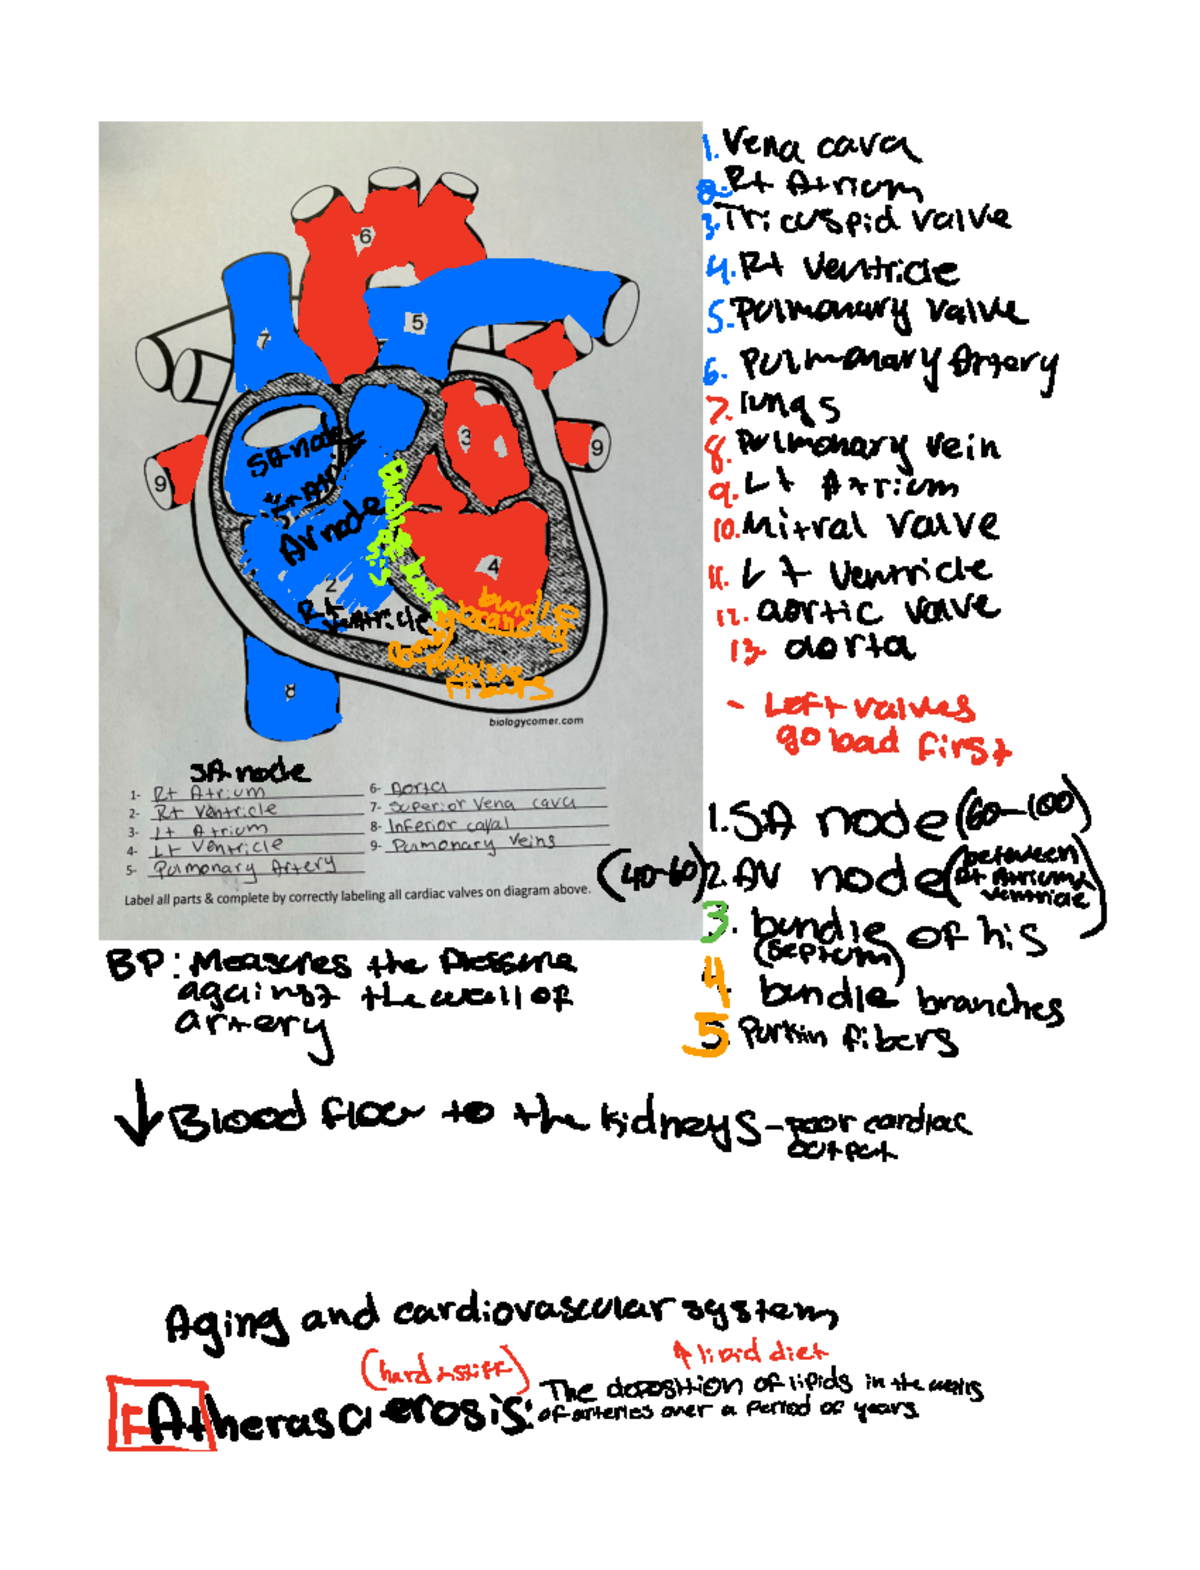 1. Vena cava
2. Rt Atrium
3. Tricuspid valve
4. Rt ventricle
5. Pulmonary valve
6. Pulmonary Artery
7. lungs
8. Pulmonary vein
9. Lt Atrium
10. Mitral valve
11. Lt ventricle
12. aortic valve
13. aorta
- Left valves
go bad first
6
5
7
3
9
9
SA node
AV node
4
2
Rt
ventricle
bundle
branches
fibers
8
biologycorner.com
SA node
1- Rt Atrium
2- Rt Ventricle
3- Lt Atrium
4- Lt Ventricle
5- Pulmonary Artery
6- Aorta
7- Superior Vena cava
8- Inferior caval
9- Pulmonary Veins
Label all parts & complete by correctly labeling all cardiac valves on diagram above.
1. SA node (60-100)
(40-60) 2. AV node (between
Rt Atrium &
ventricle)
3. bundle of his
(septum)
4. bundle branches
5 Purkin fibers
BP: Measures the Pressure
against the wall of
artery
↓ Blood flow to the kidneys - poor cardiac
output
Aging and cardiovascular system
(hard & stiff) ↑ lipid diet
Atherasclerosis: The deposition of lipids in the walls
of arteries over a period of years